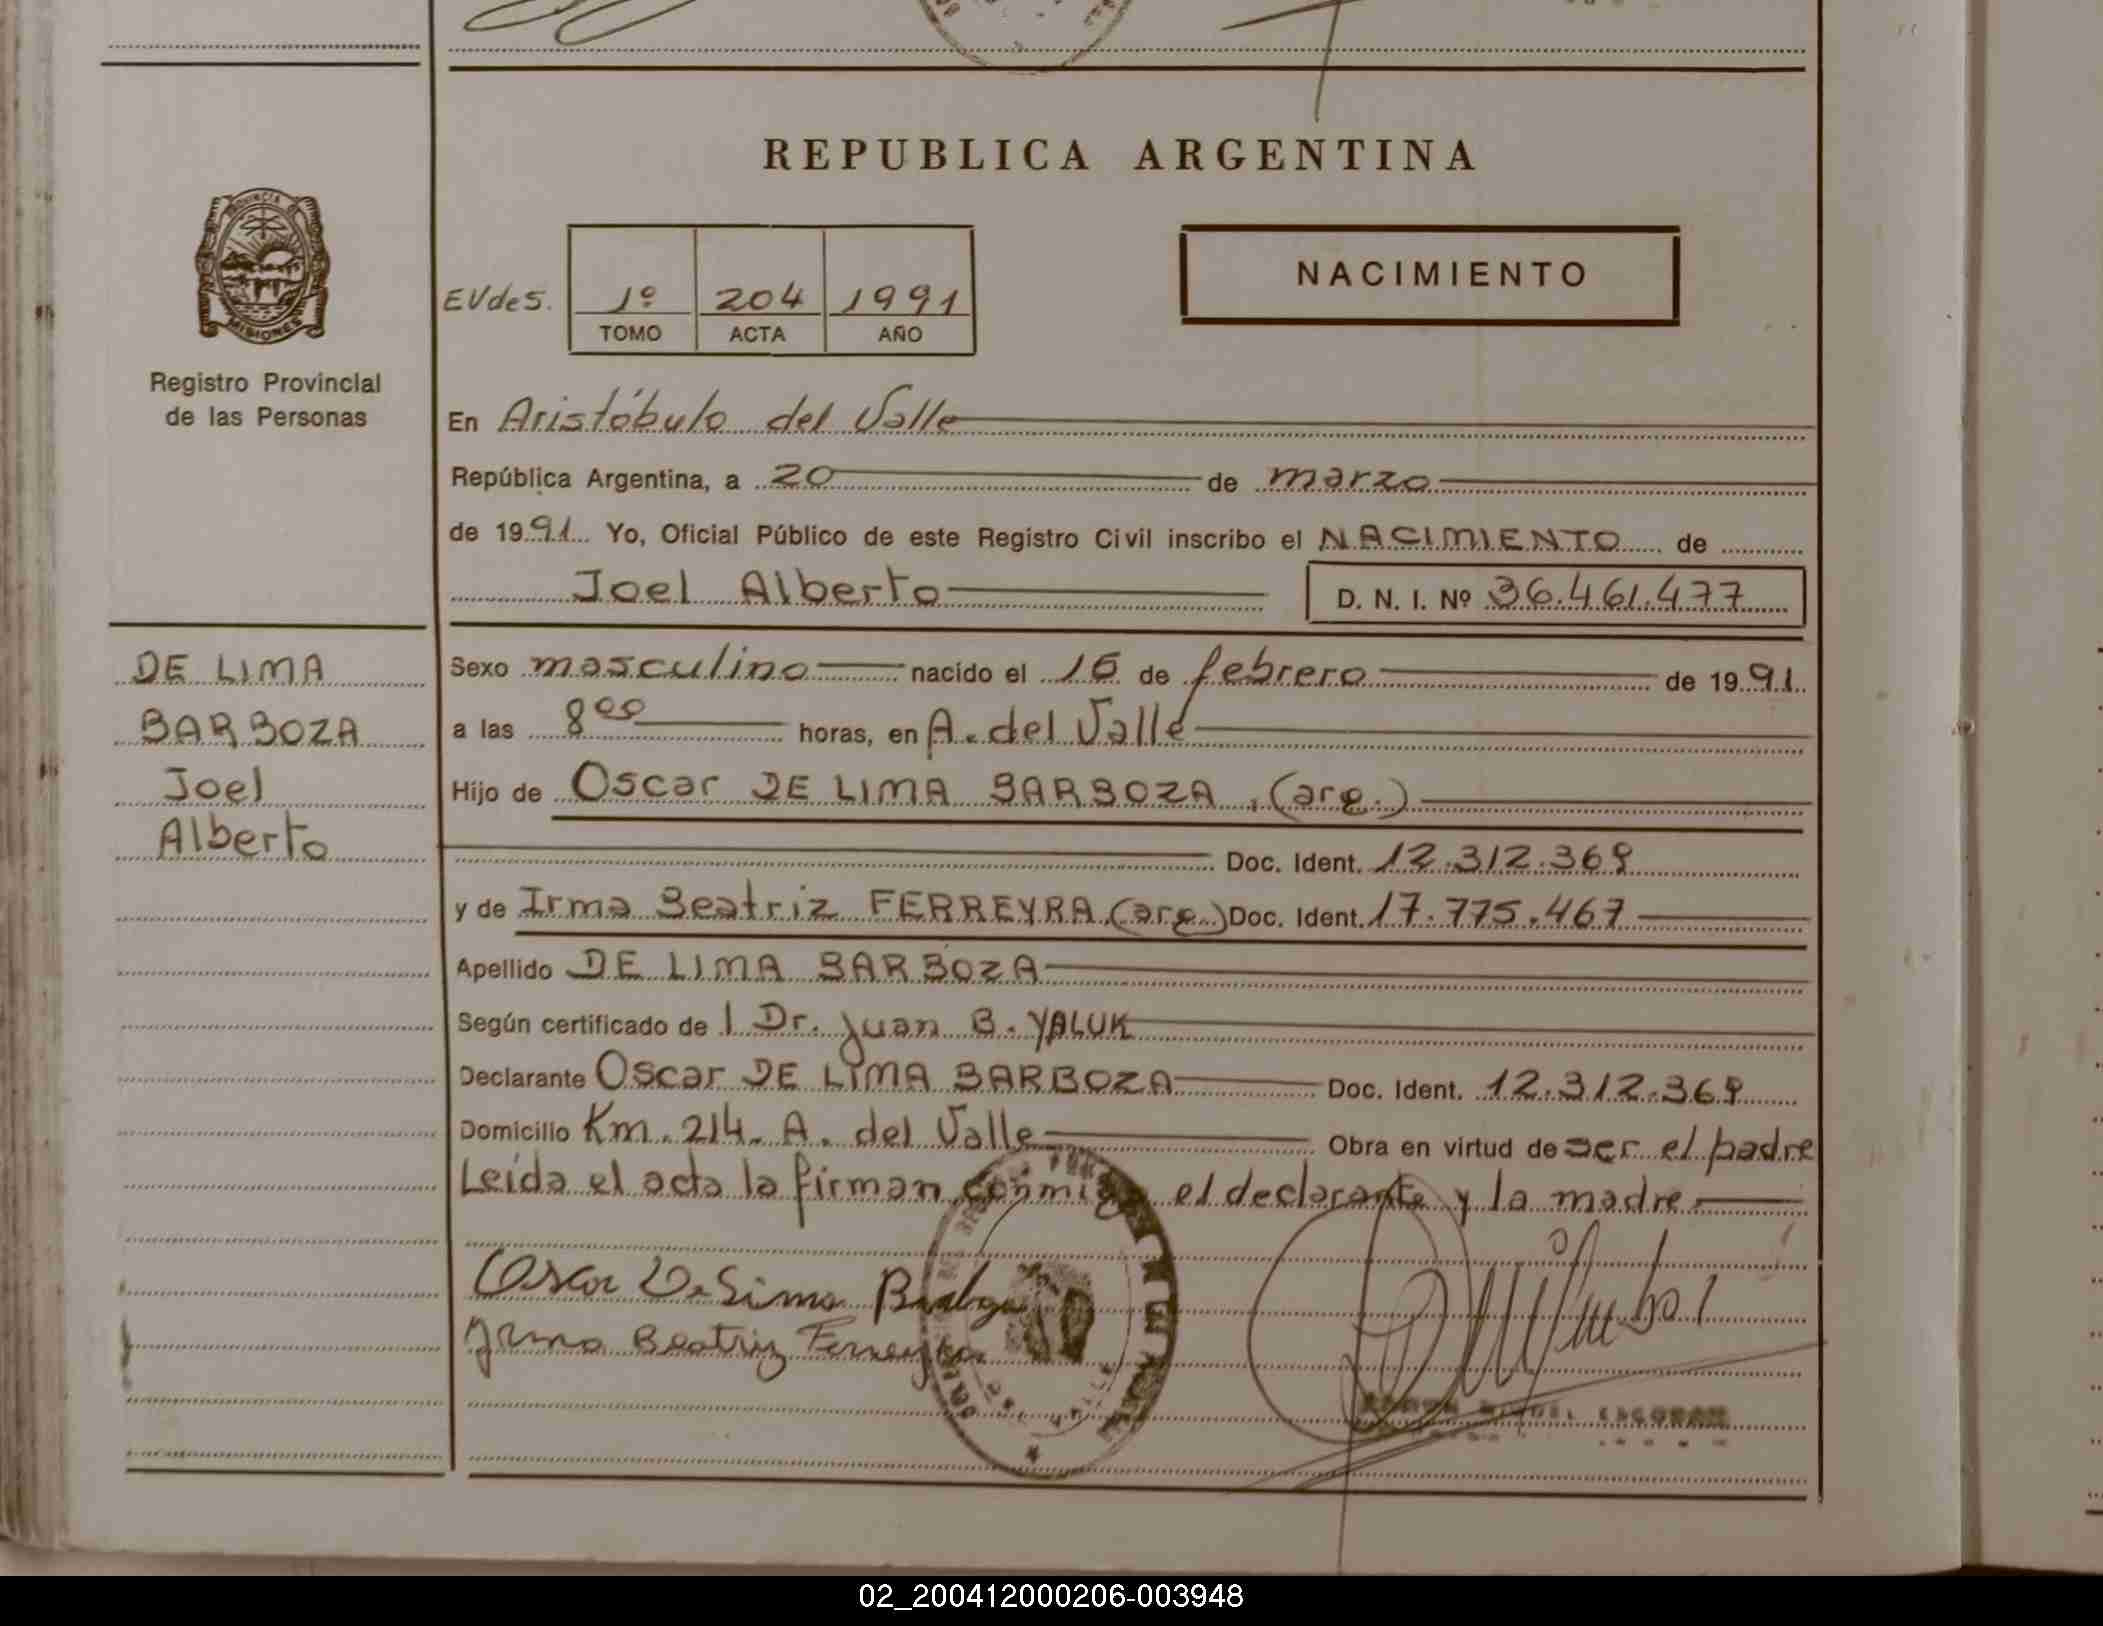 REPUBLICA ARGENTINA
PROVINCIA
MISIONES
Registro Provincial
de las Personas
NACIMIENTO
EVdes. 1º 204 1991
TOMO ACTA AÑO
En Aristóbulo del Valle
República Argentina, a 20 de marzo
de 1991 Yo, Oficial Público de este Registro Civil inscribo el NACIMIENTO de
Joel Alberto D. N. I. Nº 36.461.477
DE LIMA
BARBOZA
Joel
Alberto
Sexo masculino nacido el 16 de febrero de 1991.
a las 8 00 horas, en A. del Valle
Hijo de Oscar DE LIMA BARBOZA, (arg.)
Doc. Ident. 12.312.369
y de Irma Beatriz FERREYRA (arg.) Doc. Ident. 17.775.467
Apellido DE LIMA BARBOZA
Según certificado de l Dr. Juan B. YALUK
Declarante Oscar DE LIMA BARBOZA Doc. Ident. 12.312.369
Domicilio Km. 214. A. del Valle Obra en virtud de ser el padre
Leída el acta la firman conmigo el declarante y la madre
Oscar De Lima
Irma Beatriz Ferreyra
02_200412000206-003948